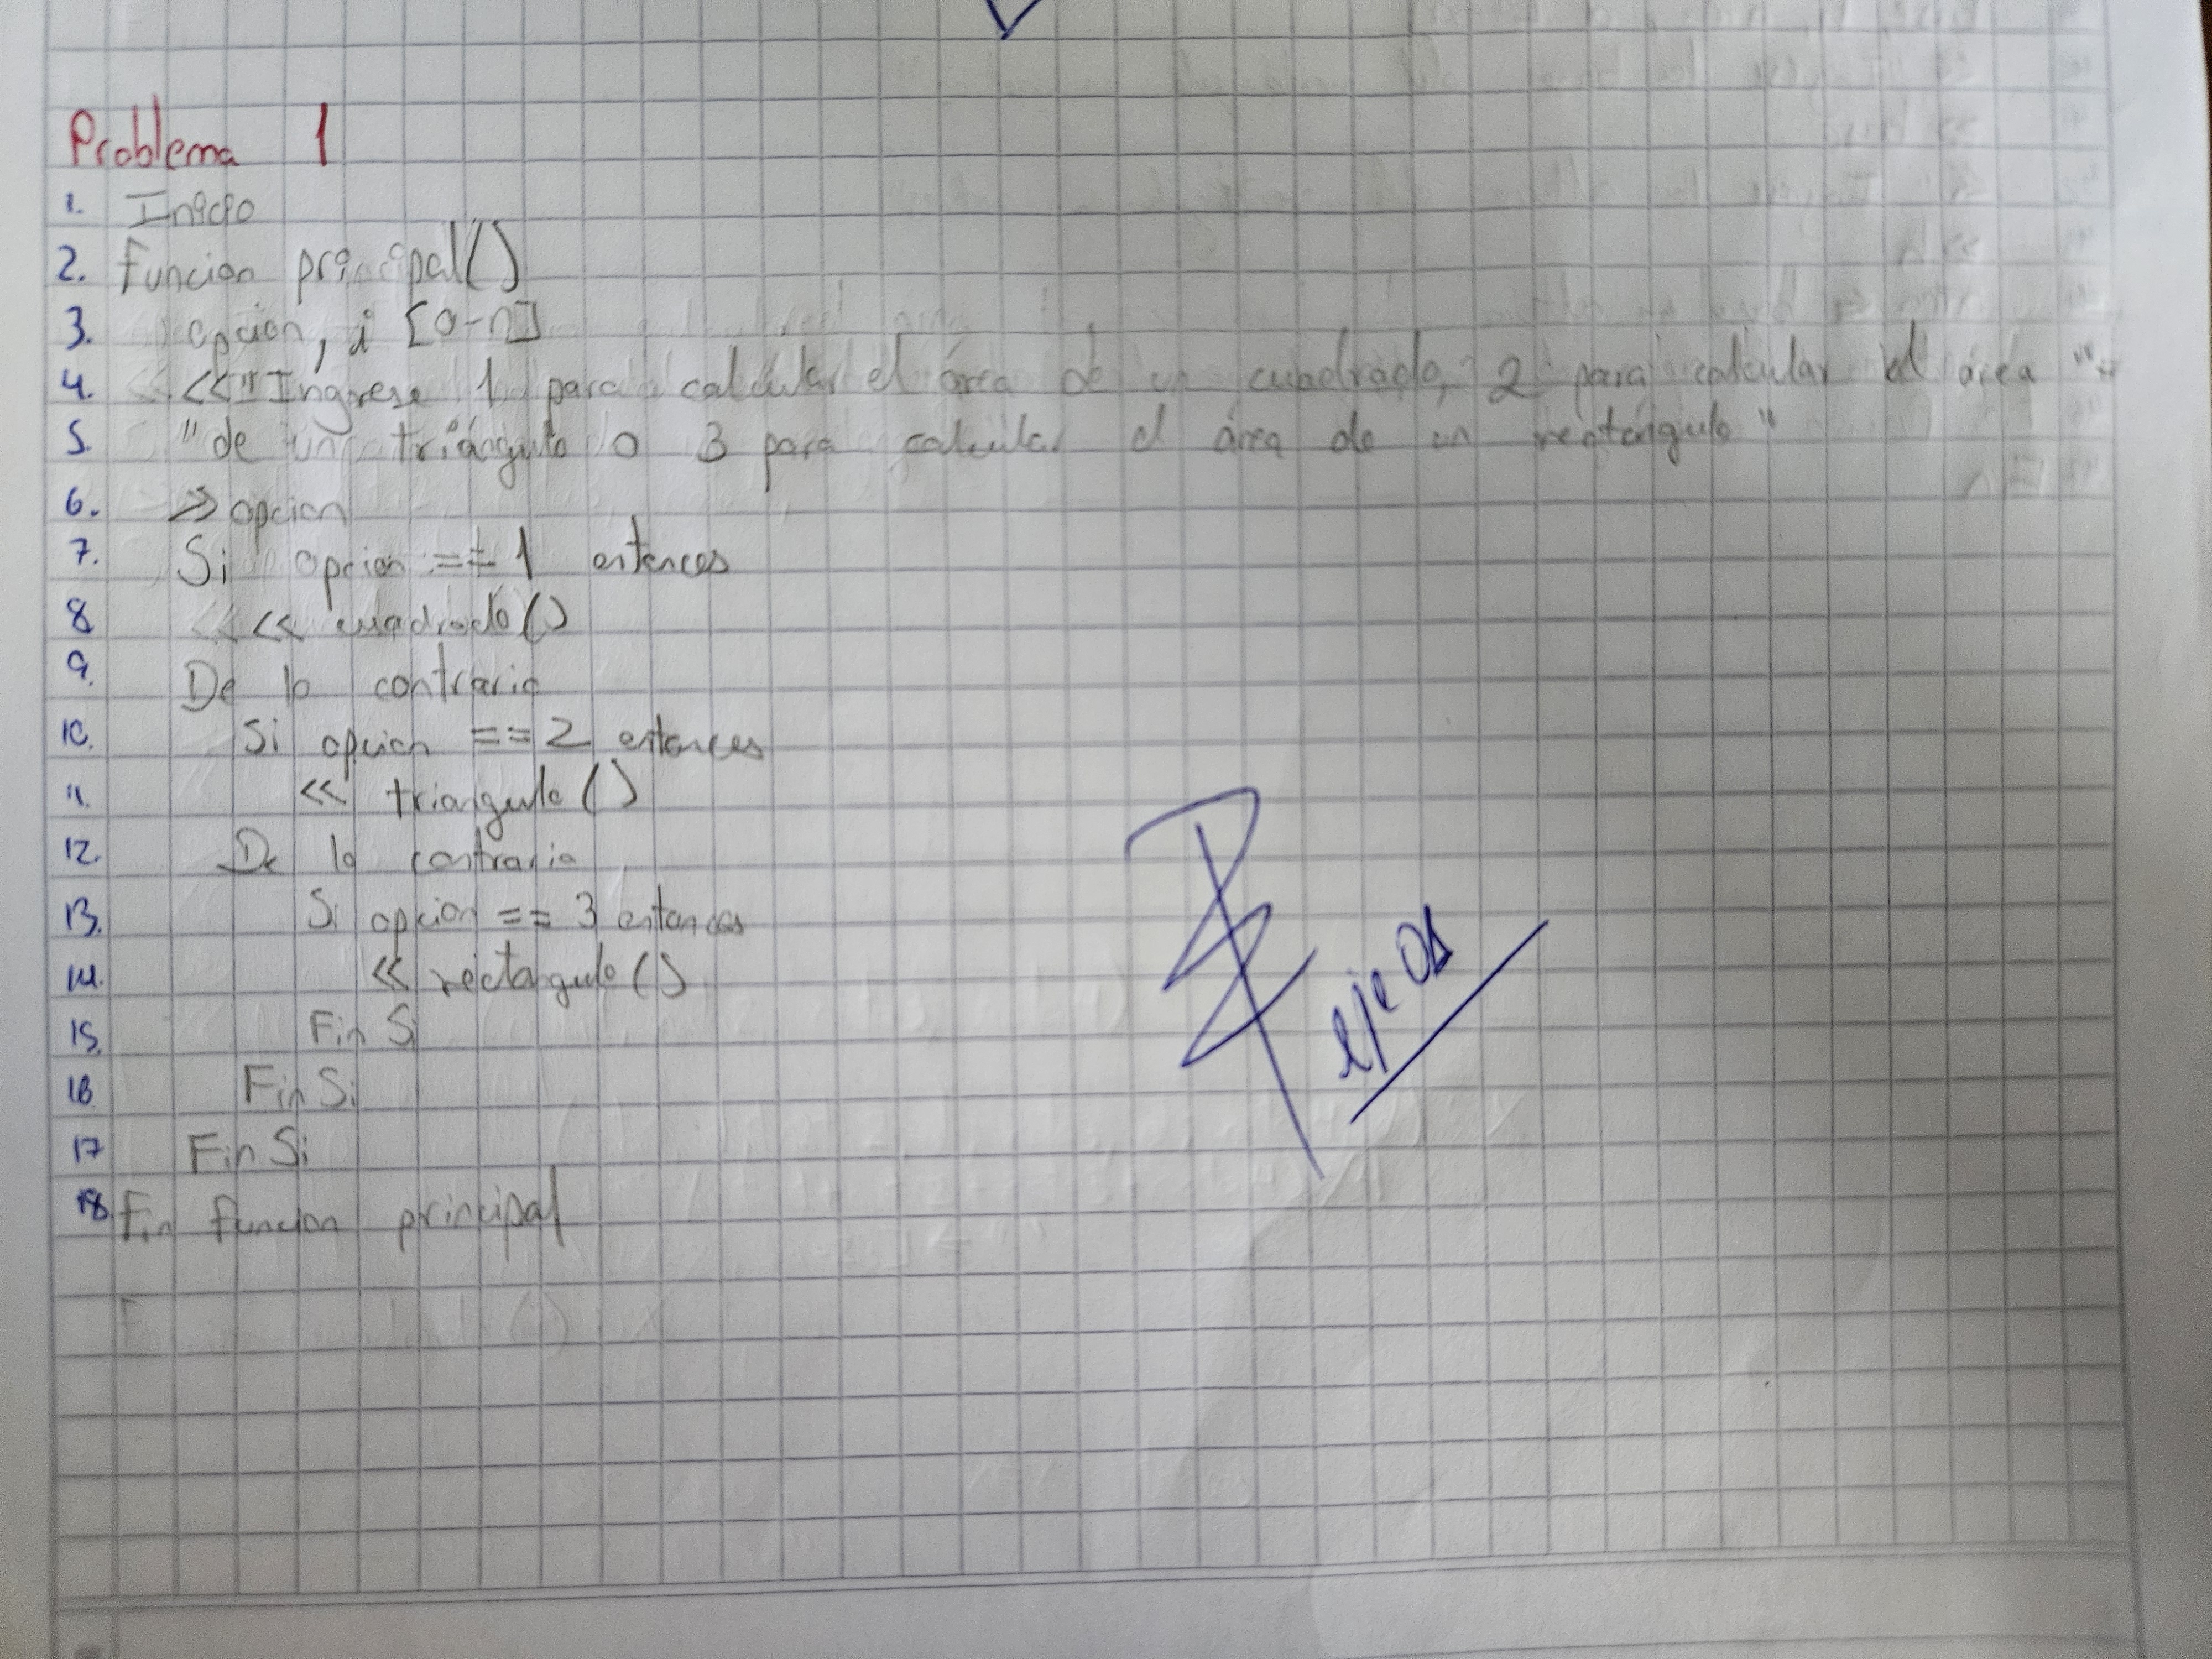 Problema 1
1. Inicio
2. Funcion principal()
3. opcion, i [0-n]
4. <<"Ingrese 1 para calcular el área de un cuadrado, 2 para calcular el área "+
5. "de un triángulo o 3 para calcular el área de un rectángulo"
6. >> opcion
7. Si opcion == 1 entonces
8 << cuadrado()
9. De lo contrario
10. Si opcion == 2 entonces
11. << triangulo()
12. De lo contrario
13. Si opcion == 3 entonces
14. << rectangulo()
15. Fin Si
16 Fin Si
17 Fin Si
18. Fin funcion principal
eje 01